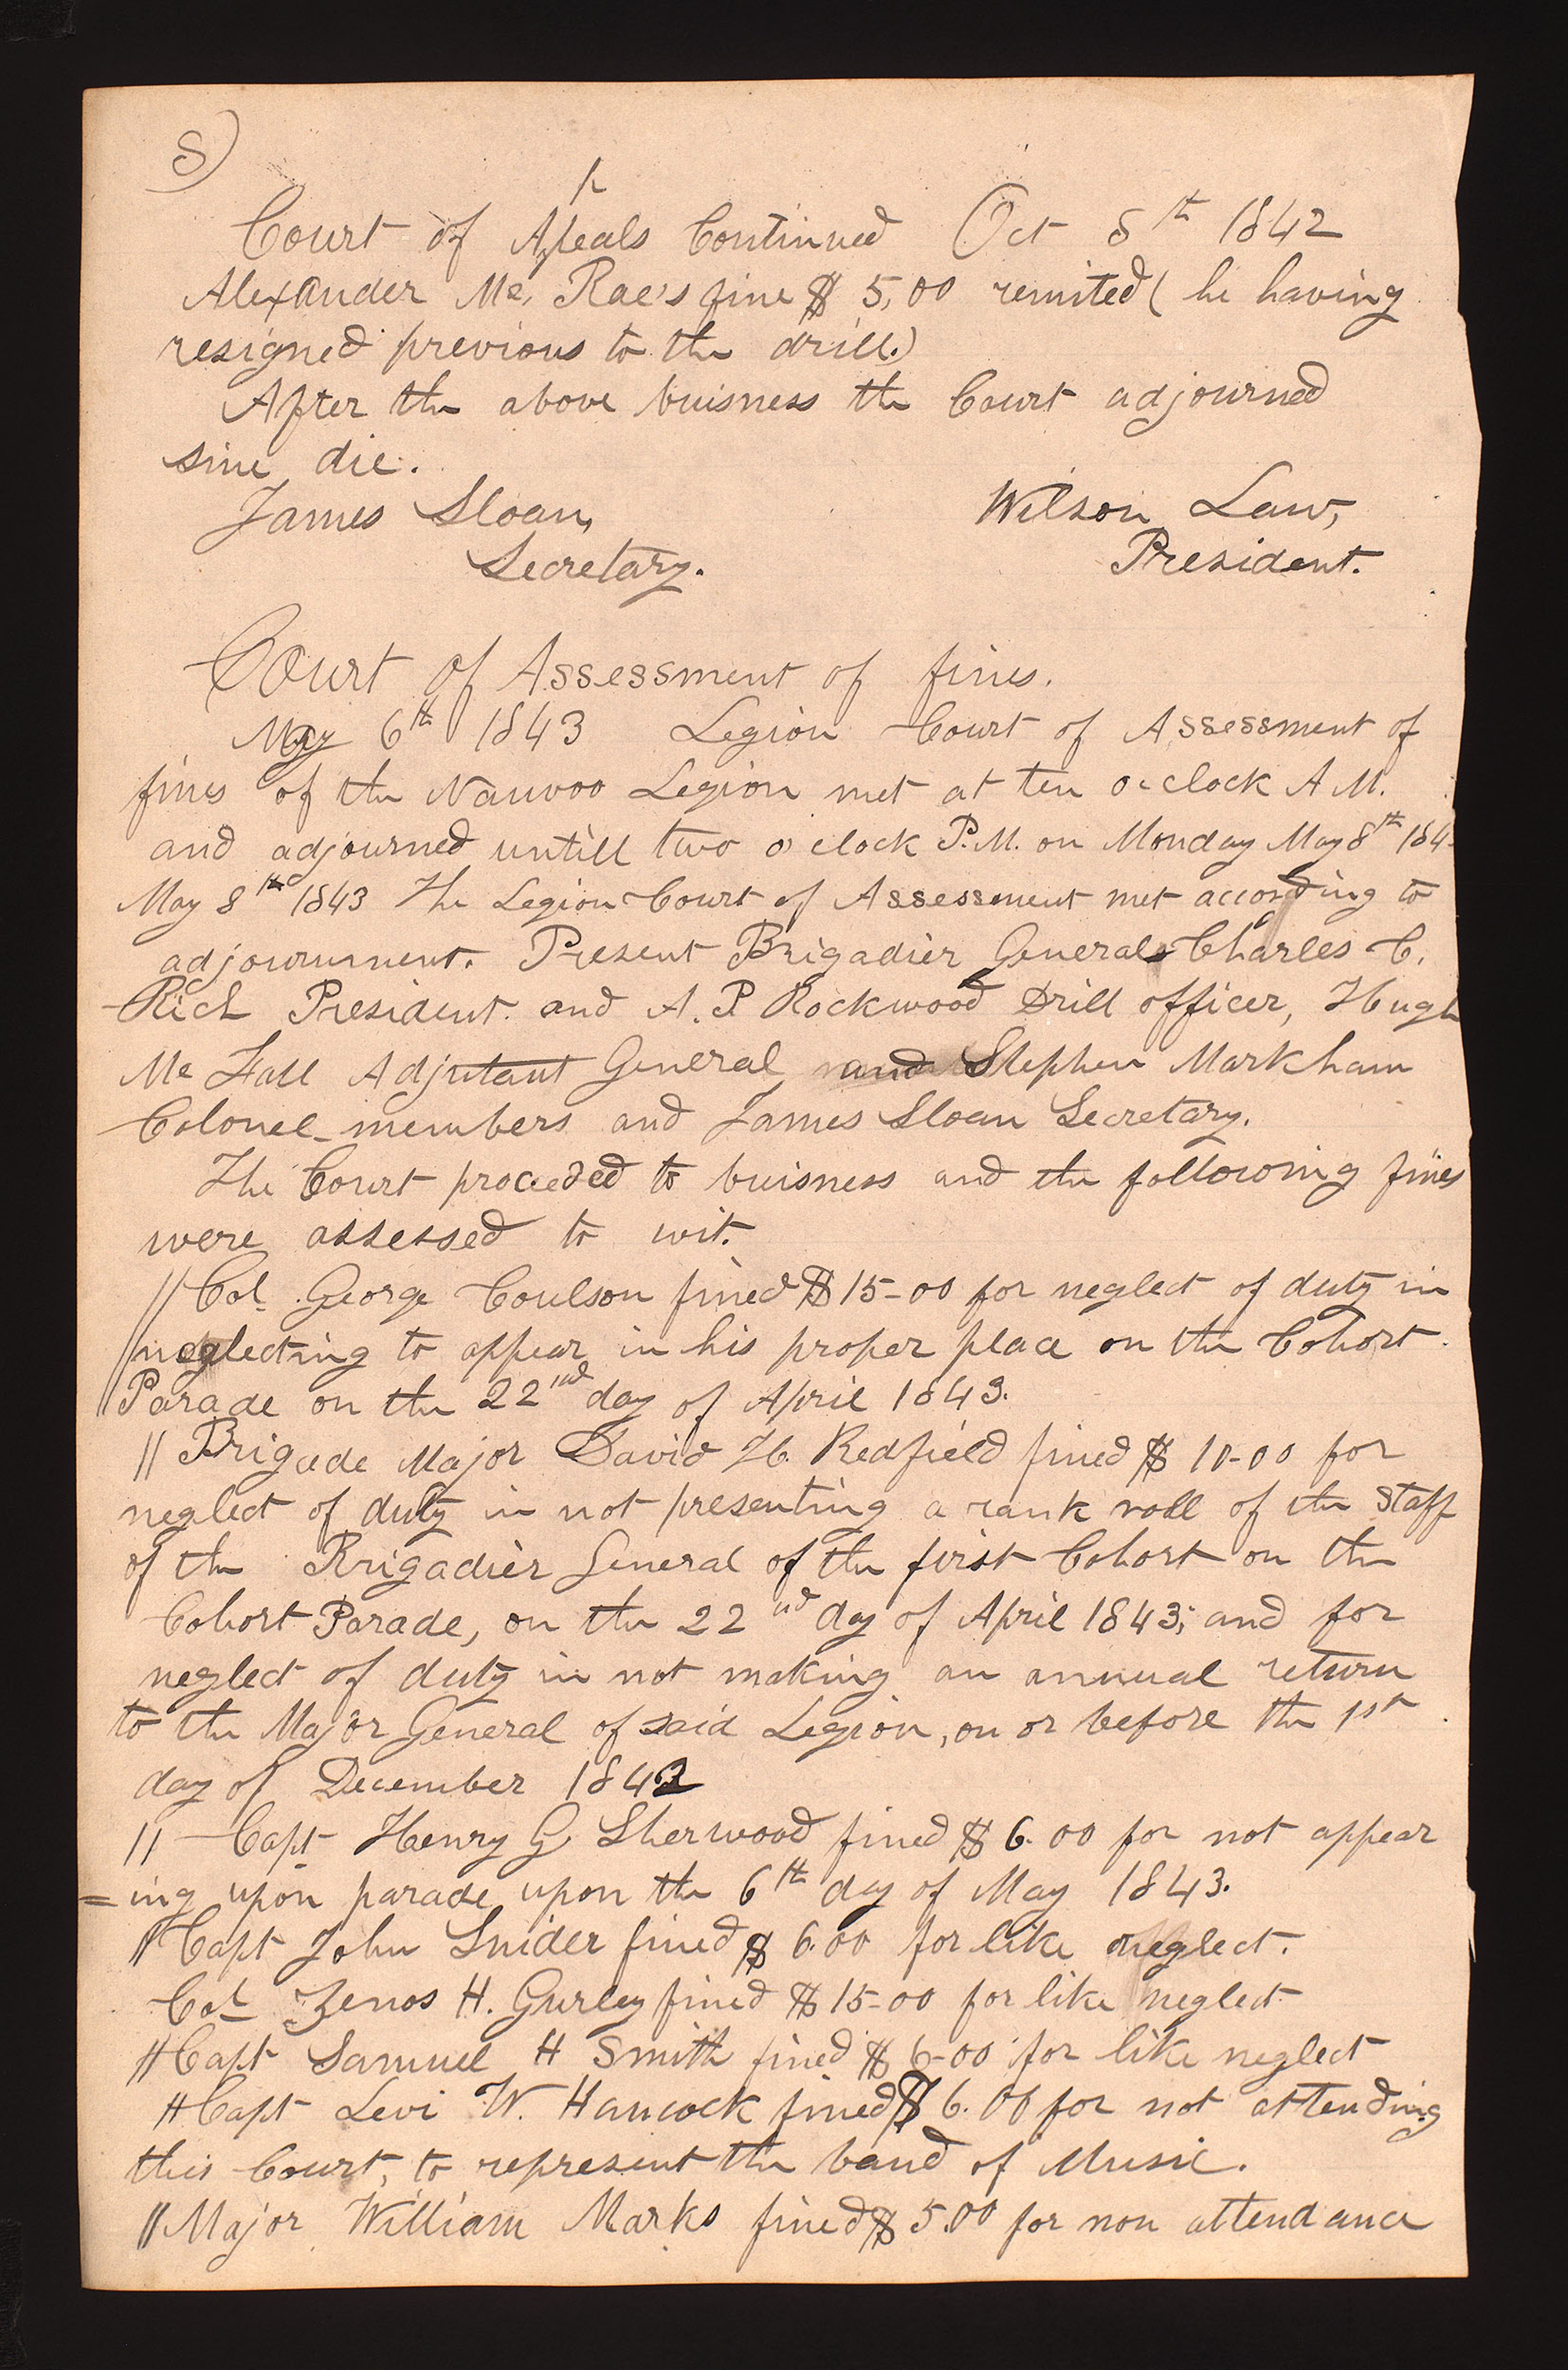 8)
p
Court of Apeals Continued Oct 8th 1842
Alexander Mc, Rae's fine $ 5,00 remited ( he having
resigned previous to the drill.)
After the above buisness the Court adjourned
sine die.
James Sloan, Wilson Law,
Secretary. President.
Court of Assessment of fines.
May 6th 1843 Legion Court of Assessment of
fines of the Nauvoo Legion met at ten o-clock A M.
and adjourned untill two o'clock P.M. on Monday May 8th 184
May 8th 1843 The Legion Court of Assessment met according to
adjournment. Present Brigadier Generals Charles C.
Rich President. and A. P Rockwood Drill officer, Hugh
Mc Fall Adjutant General and Stephen Markham
Colonel members and James Sloan Secretary.
The Court proceeded to buisness and the following fines
were assessed to wit.
// Col. George Coulson fined $15-00 for neglect of duty in
neglecting to appear in his proper place on the Cohort
Parade on the 22nd day of April 1843.
// Brigade Major David H. Redfield fined $ 10-00 for
neglect of duty in not presenting a rank roll of the Staff
of the Brigadier General of the first Cohort on the
Cohort Parade, on the 22nd day of April 1843; and for
neglect of duty in not making an annual return
to the Major General of said Legion, on or before the 1st
day of December 1842
// Capt Henry G Sherwood fined $ 6.00 for not appear
=ing upon parade upon the 6th day of May 1843.
// Capt John Snider fined $ 6.00 for like neglect.
Col Zenos H. Gurley fined $ 15-00 for like neglect
// Capt Samuel H Smith fined $ 6-00 for like neglect
// Capt Levi W. Hancock fined $ 6.00 for not attending
this Court, to represent the band of Music.
// Major William Marks fined $ 5.00 for non attendance